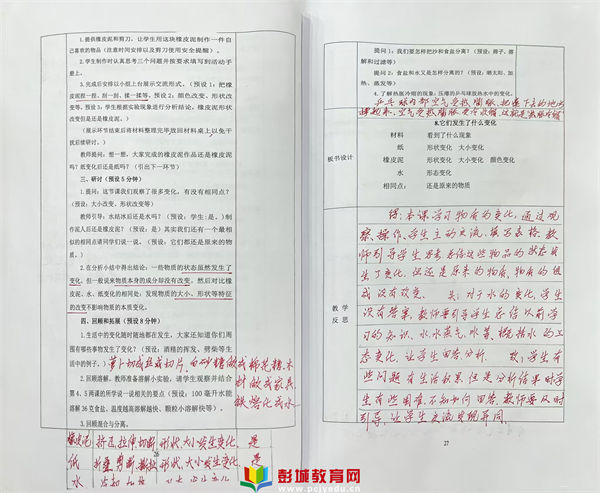 1.提供橡皮泥和剪刀，让学生用这块橡皮泥制作一件自
己喜欢的物品（注意时间安排以及剪刀使用安全提醒）。
2.学生制作时认真思考三个问题并按要求填写到活动手
册上。
3.完成后安排以小组上台展示交流形式，（预设 1：把橡
皮泥捏一捏、剪一剪、揉一揉等。预设 2：颜色改变、形状改
变等。预设 3：学生根据实验现象进行分析结论，橡皮泥形状
改变但是还是橡皮泥。）
（展示环节结束后将材料整理完毕放回材料桌上以免干
扰后续研讨。）
教师提问：想一想，大家完成的橡皮泥作品还是橡皮泥
吗？纸变化后还是纸吗？（引出下一环节）
三、研讨（预设 5 分钟）
1.提问：这节课我们观察了很多变化，有没有相同点？
（预设：大小改变、形状改变等）
教师引导：水结冰后还是水吗？（预设：学生：是。）制
作泥人后还是橡皮泥？（是）其实我们还有一个最相
似的相同点请同学们说一说。（预设：它们都还是原来的物
质。）
2.在分析小结中得出结论：一些物质的状态虽然发生了
变化，但一般说来物质本身的成分却没有改变。然后对比橡
皮泥、水、纸变化的相同处：发现物质的大小、形状等特征
的改变不影响物质的本质变化。
四、回顾和拓展（预设 8 分钟）
1.生活中的变化随时随地都在发生，大家还知道你们周
围有哪些事物发生了变化？（预设：酒精的挥发、劈柴等生
活中的例子。）萝卜切成丝或切片，白砂糖做成棉花糖，木
材做成家具，
铁熔化成水
2.回顾溶解。教师准备溶解小实验，请学生观察并结合
第 4、5 两课的所学说一说相关的要点（预设：100 毫升水能
溶解 36 克食盐、温度越高溶解越快、颗粒小溶解快等）。
3.回顾混合与分离。
橡皮泥 挤压、拉伸、切断 形状、大小发生变化 是
26
纸 折叠、剪断、撕扯 形状、大小发生变化 是
水
提问 1：我们要怎样把沙和食盐分离？（预设：筛子、溶
解和过滤等）
提问 2：食盐和水又是怎样分离的？（预设：晒太阳、加
热、蒸发等）
4.了解热胀冷缩的现象：压瘪的乒乓球热水中的变化。
乒乓球内部空气受热膨胀，把瘪下去的地方
8.它们发生了什么变化
板书设计
材料 看到了什么现象
纸 形状变化 大小变化
橡皮泥 形状变化 大小变化 颜色变化
水 形态变化
相同点： 还是原来的物质
教学
反思
得：本课学习物质的变化，通过观
察、操作、学生主动交流、填写表格，教
师引导学生思考总结这些物品的状态发
生了变化，但还是原来的物质，物质的组
成没有改变。 失：对于水的变化，学生
没有答案，教师要引导学生结合以前学
习的知识，水、水蒸气、冰等，概括水的三
态变化，让学生回答分析。 改：学生有
些问题有生活积累，但是分析结果时学
生有些困难，不知如何回答，教师要及时
引导，让学生交流发现异同。
27
彭城教育网
www.pcjyedu.cn